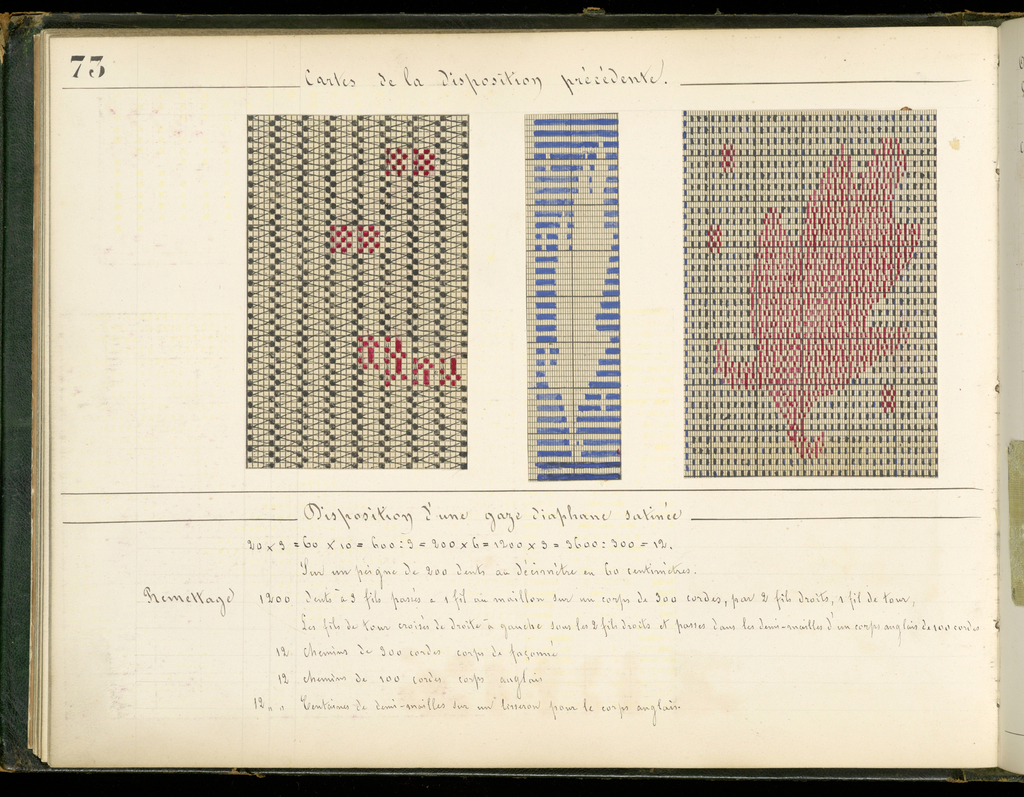 73
Cartes de la disposition précédente.
Disposition d'une gaze diaphane satinée
20 x 3 = 60 x 10 = 600 : 3 = 200 x 6 = 1200 x 3 = 3600 : 300 = 12.
Sur un peigne de 200 dents au décimètre en 60 centimètres.
Remettage 1200 dents à 3 fils passés à 1 fil au maillon sur un corps de 300 cordes, par 2 fils droits, 1 fil de tour,
Les fils de tour croisés de droite à gauche sous les 2 fils droits et passés dans les demi-mailles d'un corps anglais de 100 cordes
12 chemins de 300 cordes corps de façonné
12 chemins de 100 cordes corps anglais
12 " " Centaines de demi-mailles sur un pour le corps anglais.